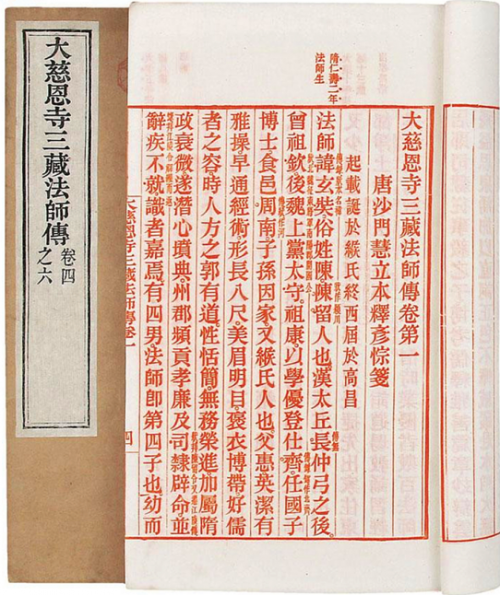 大慈恩寺三藏法師傳
卷四
之六
隋仁壽二年
法師生
大慈恩寺三藏法師傳卷第一
唐沙門慧立本釋彥悰箋
起載誕於緱氏終西屆於高昌
法師諱玄奘俗姓陳陳留人也漢太丘長仲弓之後
曾祖欽後魏上黨太守祖康以學優登仕齊任國子
博士食邑周南子孫因家又緱氏人也父惠英潔有
雅操早通經術形長八尺美眉明目褒衣博帶好儒
者之容時人方之郭有道性恬簡無務榮進加屬隋
政衰微遂潛心墳典州郡頻貢孝廉及司隸辟命並
辭疾不就識者嘉焉有四男法師即第四子也幼而
大慈恩寺三藏法師傳卷一